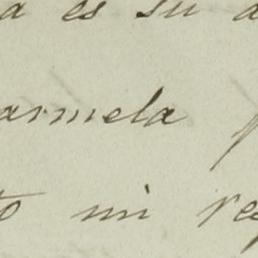 a es su a
armela p
to mi res